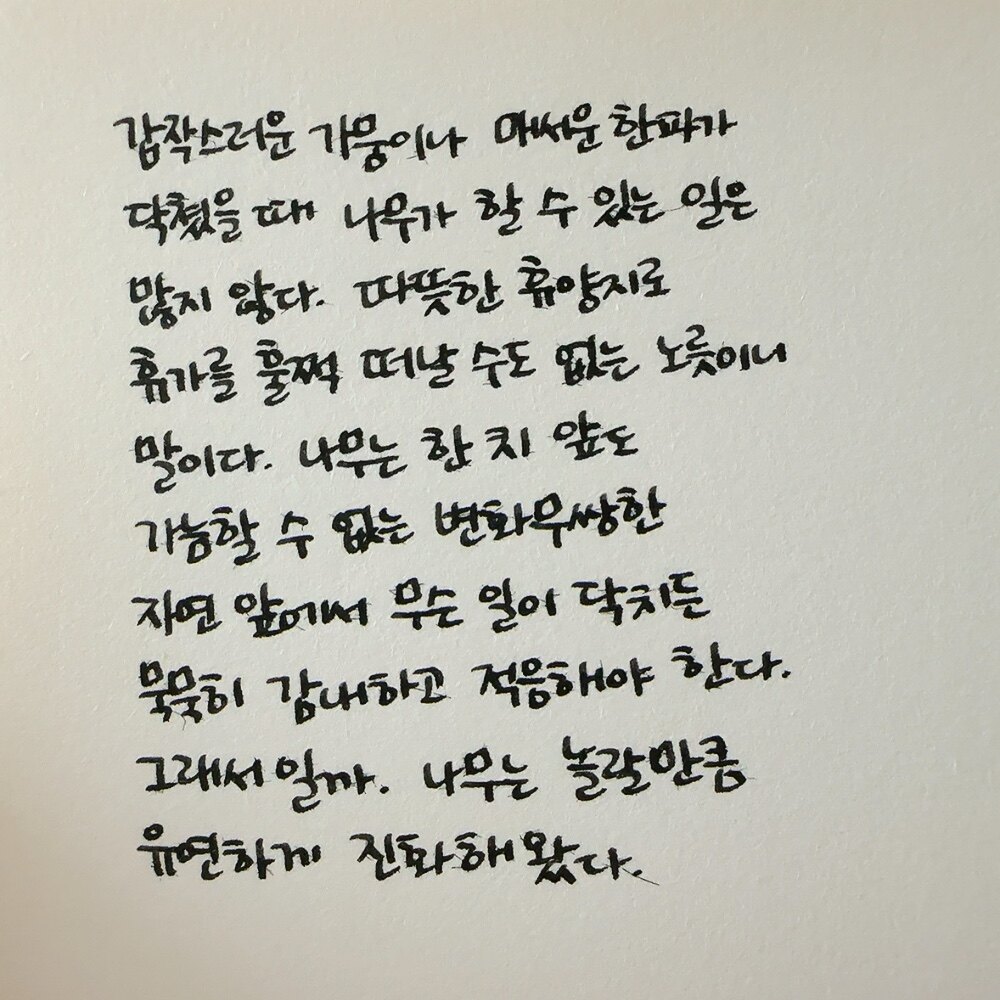 갑작스러운 가뭄이나 매서운 한파가
닥쳤을 때 나무가 할 수 있는 일은
많지 않다. 따뜻한 휴양지로
휴가를 훌쩍 떠날 수도 없는 노릇이니
말이다. 나무는 한 치 앞도
가늠할 수 없는 변화무쌍한
자연 앞에서 무슨 일이 닥치든
묵묵히 감내하고 적응해야 한다.
그래서일까. 나무는 놀랄만큼
유연하게 진화해왔다.